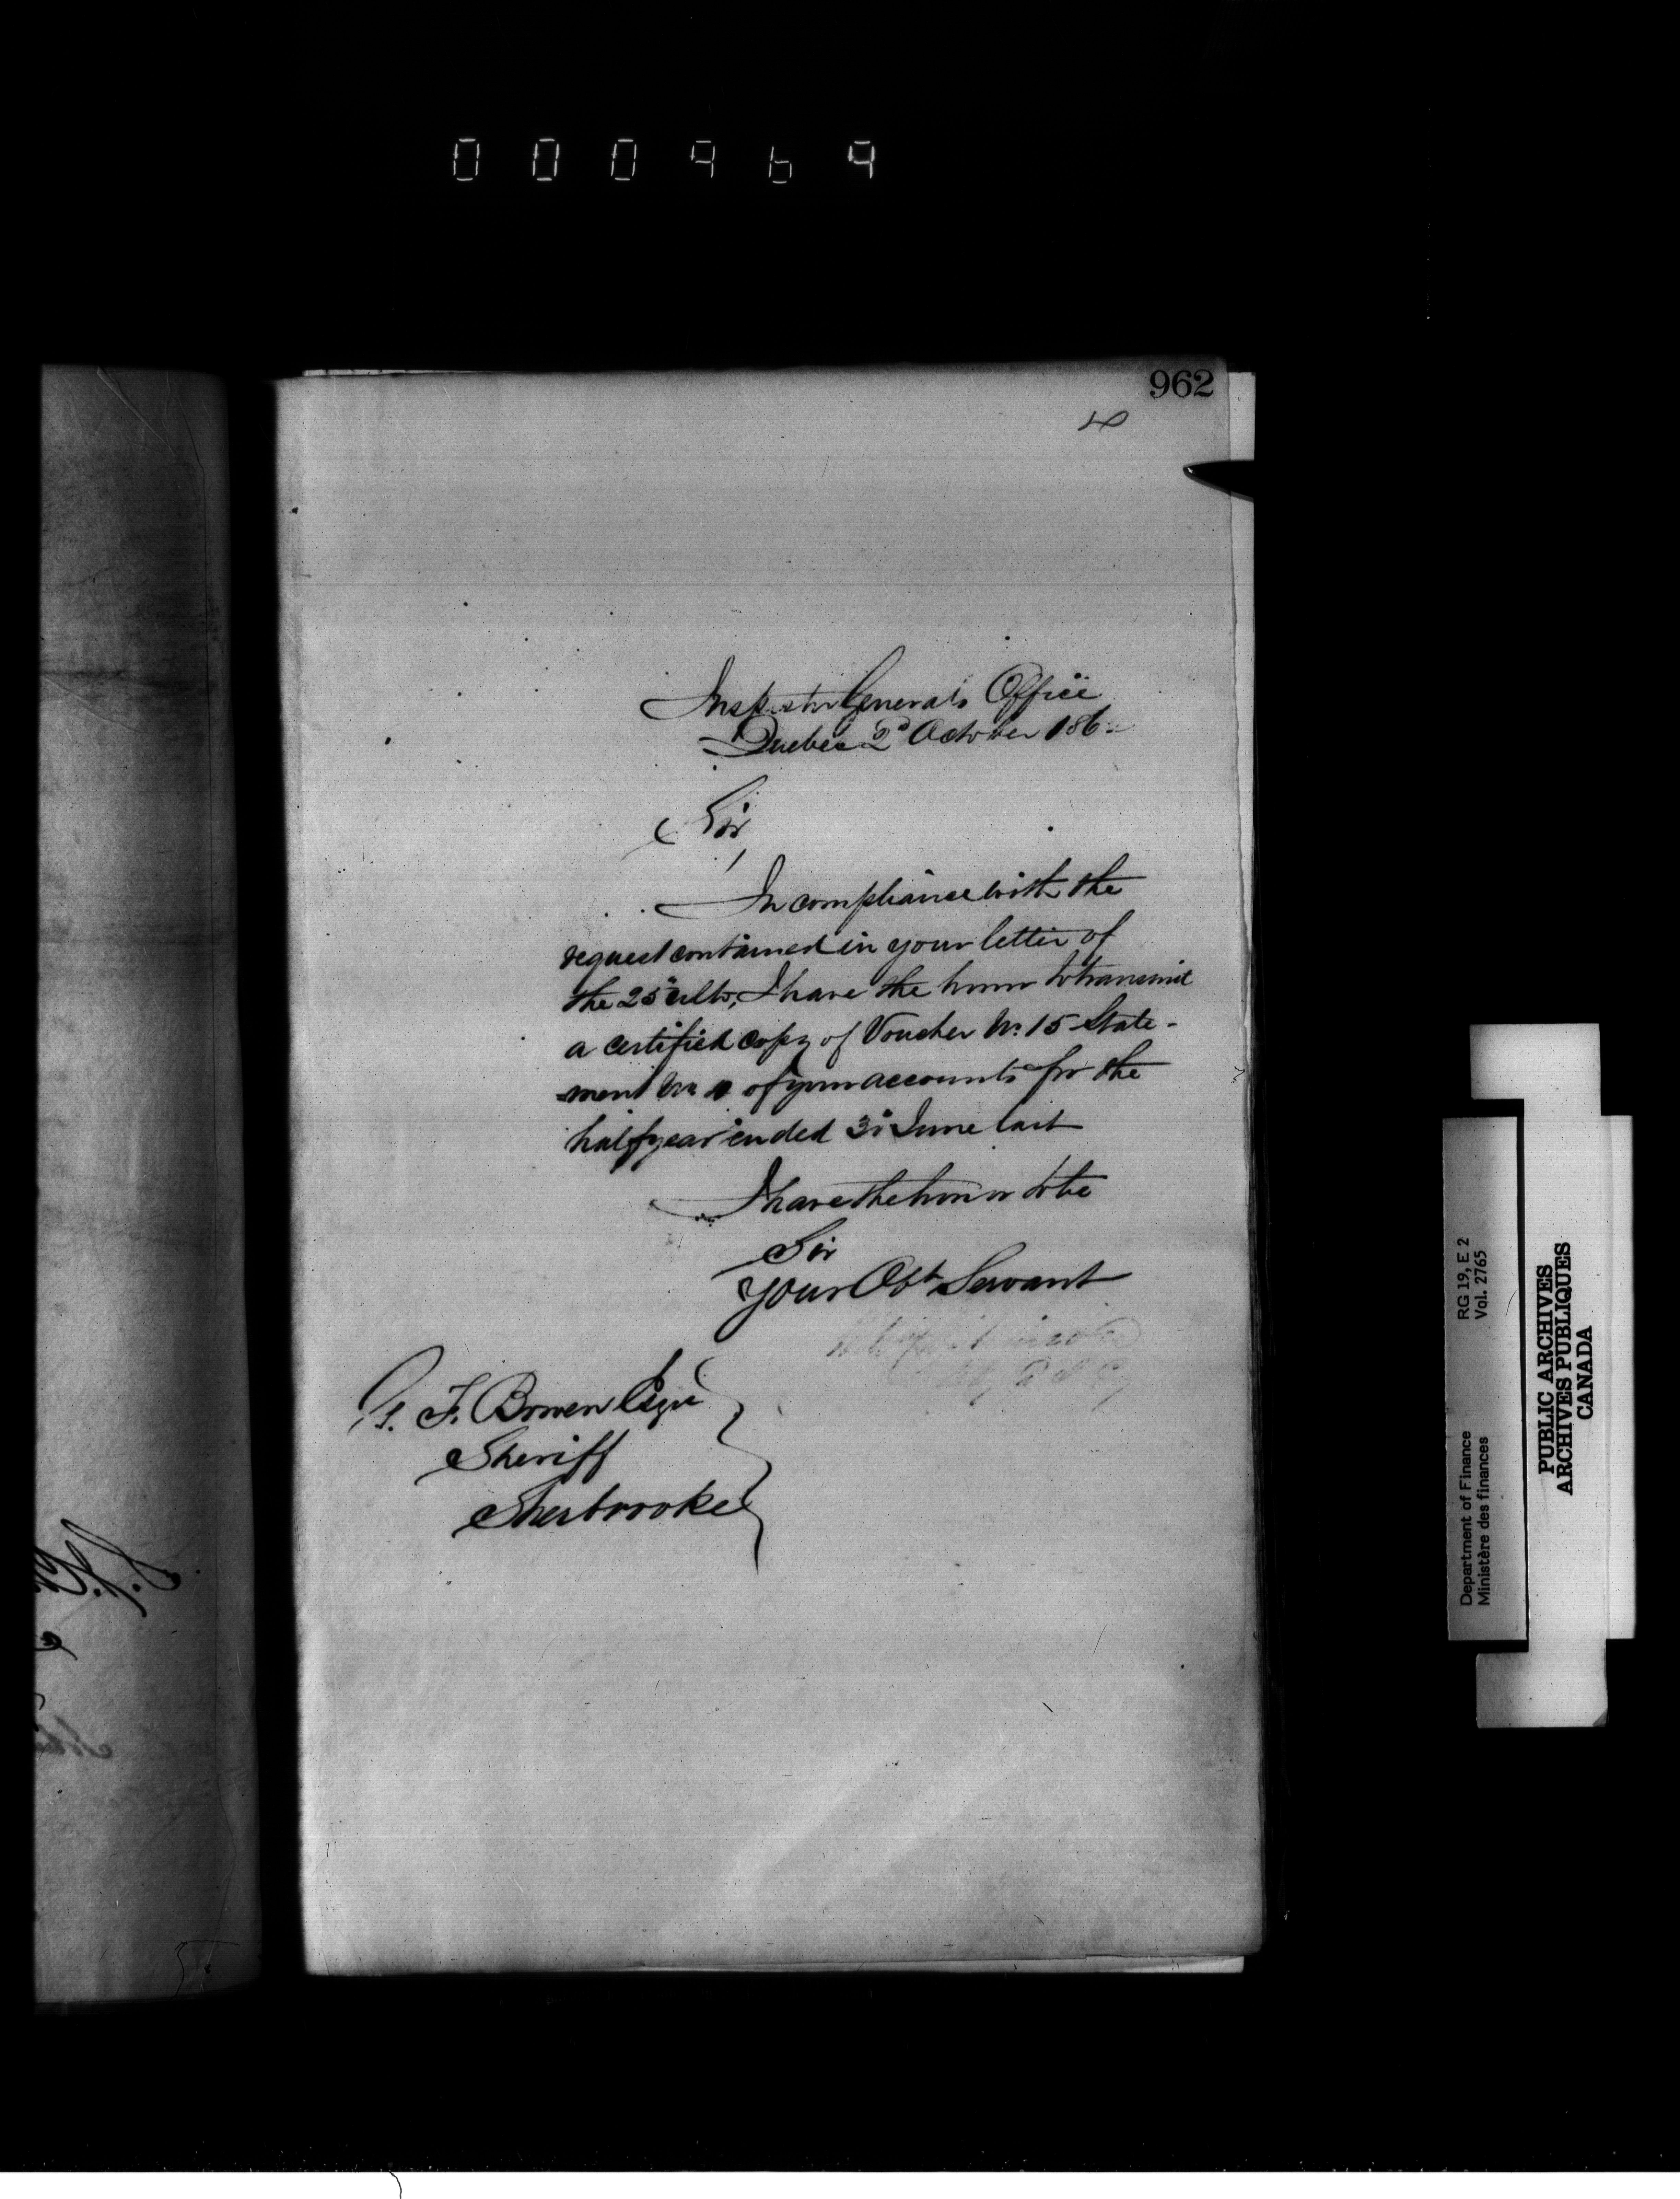 000969
962
Inspector Generals Office
Quebec 2d October 186
Sir,
In compliance with the
request contained in your letter of
the 25th ulto, I have the honor to transmit
a certified copy of Voucher No. 15 State-
ment No of your accounts for the
half year ended 30 June last
I have the honor to be
Sir
Your Obt Servant
G. F. Bowen Esqre
Sheriff
Sherbrooke
Department of Finance
Ministère des finances
RG 19, E 2
Vol. 2765
PUBLIC ARCHIVES
ARCHIVES PUBLIQUES
CANADA